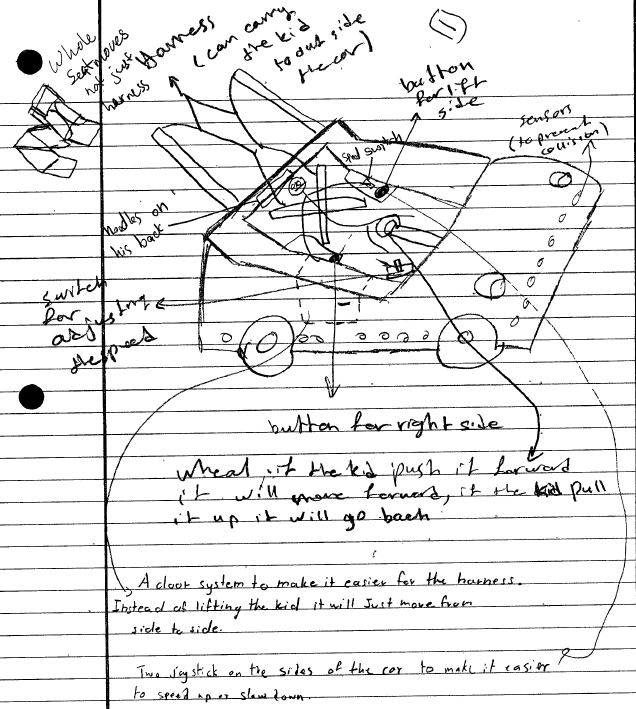 ①
Whole
Seat moves
not just
harness
Harness
(can carry
the kid
to out side
the car)
button
for lift
side
sensors
(to prevent
collision)
spid switch
his back
switch
for
adjusting
the speed
button for right side
wheal if the kid push it forward
it will move forward, if the kid pull
it up it will go back
A door system to make it easier for the harness.
Instead of lifting the kid it will Just move from
side to side.
Two Joystick on the sides of the car to make it easier
to speed up or slow down.